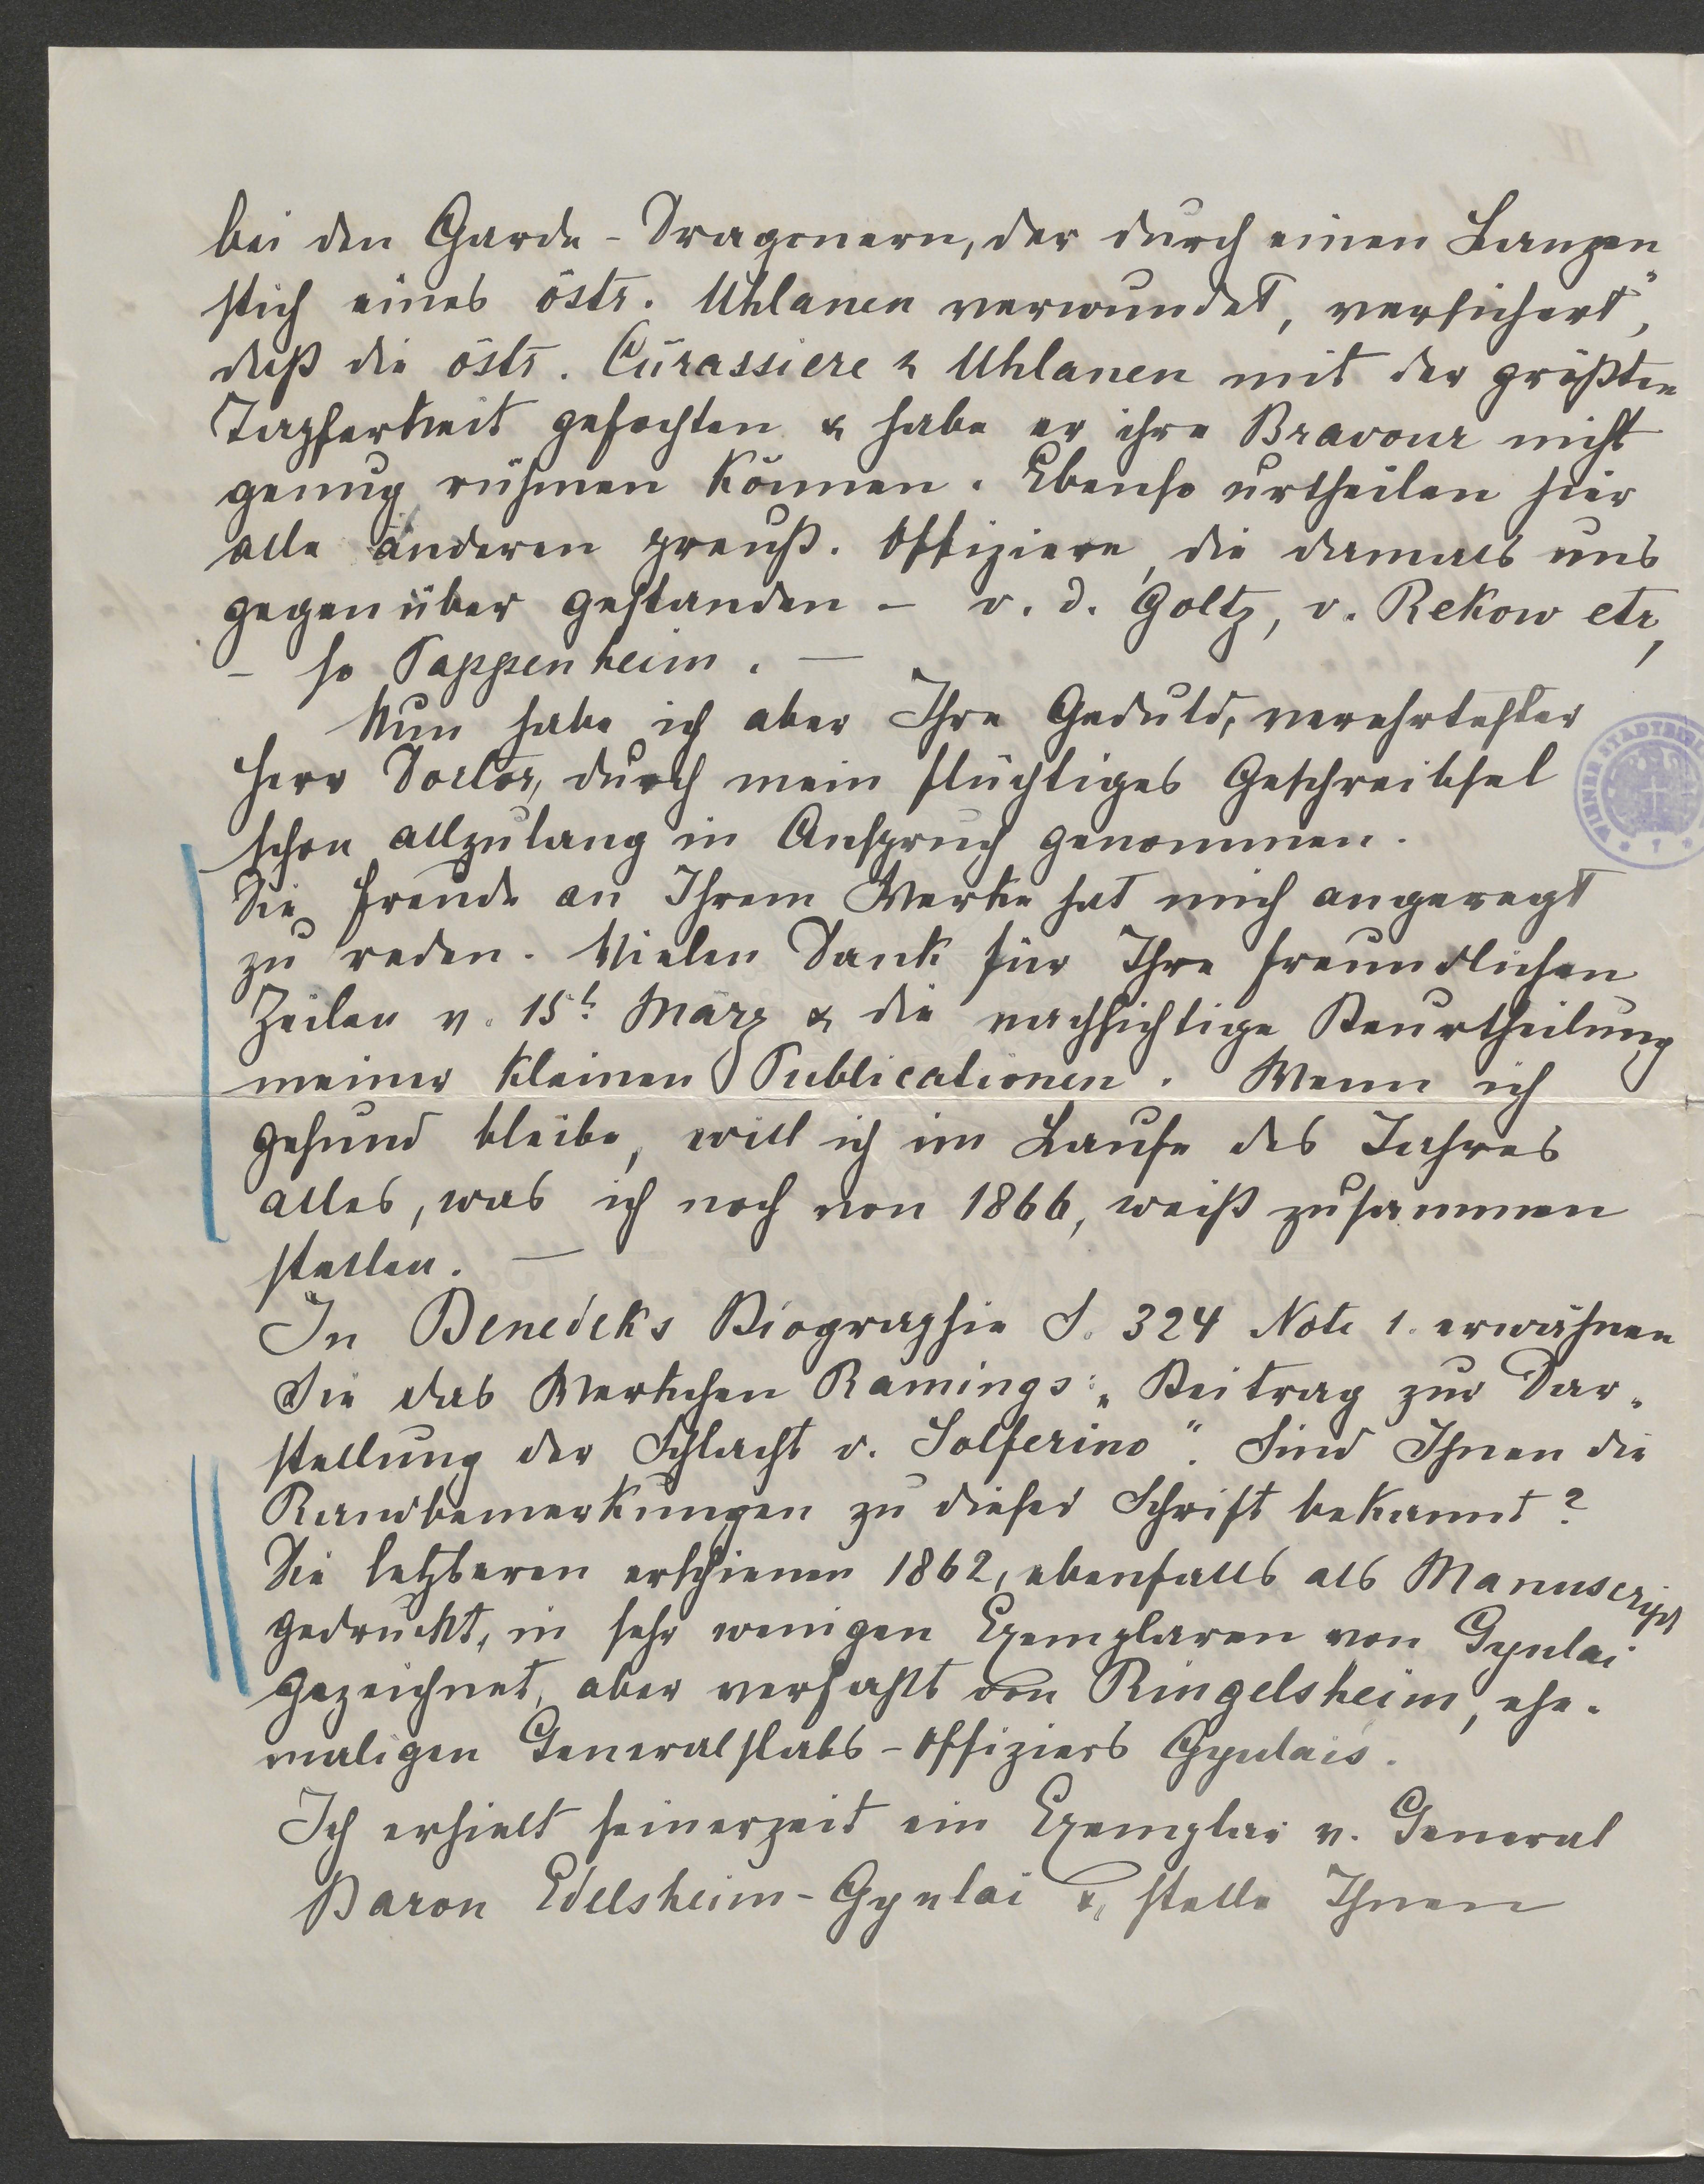 bei den Garde-Dragonern, der durch einen Lanzen
stich eines östr. Uhlanen verwundet, versichert",
daß die östr. Cürassiere & Uhlanen mit der größten
Tapferkeit gefochten & habe er ihre Bravour nicht
genug rühmen können. Ebenso urtheilen hier
alle anderen preuß. Offiziere, die damals uns
gegenüber gestanden - v. d. Goltz, v. Rekow etc,
- so Pappenheim. —
Nun habe ich aber Ihre Geduld, verehrtester
Herr Doctor, durch mein flüchtiges Geschreibsel
schon allzulang in Anspruch genommen.
Die Freude an Ihrem Werke hat mich angeregt
zu reden. Vielen Dank für Ihre freundlichen
Zeilen v. 15t März & die nachsichtige Beurtheilung
meiner kleinen Publicationen. Wenn ich
gesund bleibe, will ich im Laufe des Jahres
alles, was ich noch von 1866, weiß zusammen
stellen. —
In Benedeks Biographie S. 324 Note 1. erwähnen
Sie das Werkchen Ramings: „Beitrag zur Dar-
stellung der Schlacht v. Solferino". Sind Ihnen die
Randbemerkungen zu dieser Schrift bekannt?
Die letzteren erschienen 1862, ebenfalls als Manuscript
gedruckt, in sehr wenigen Exemplaren von Gyulai
gezeichnet, aber verfaßt von Ringelsheim, ehe-
maligen Generalstabs-Offiziers Gyulais.
Ich erhielt seinerzeit ein Exemplar v. General
Baron Edelsheim-Gyulai &, stelle Ihnen